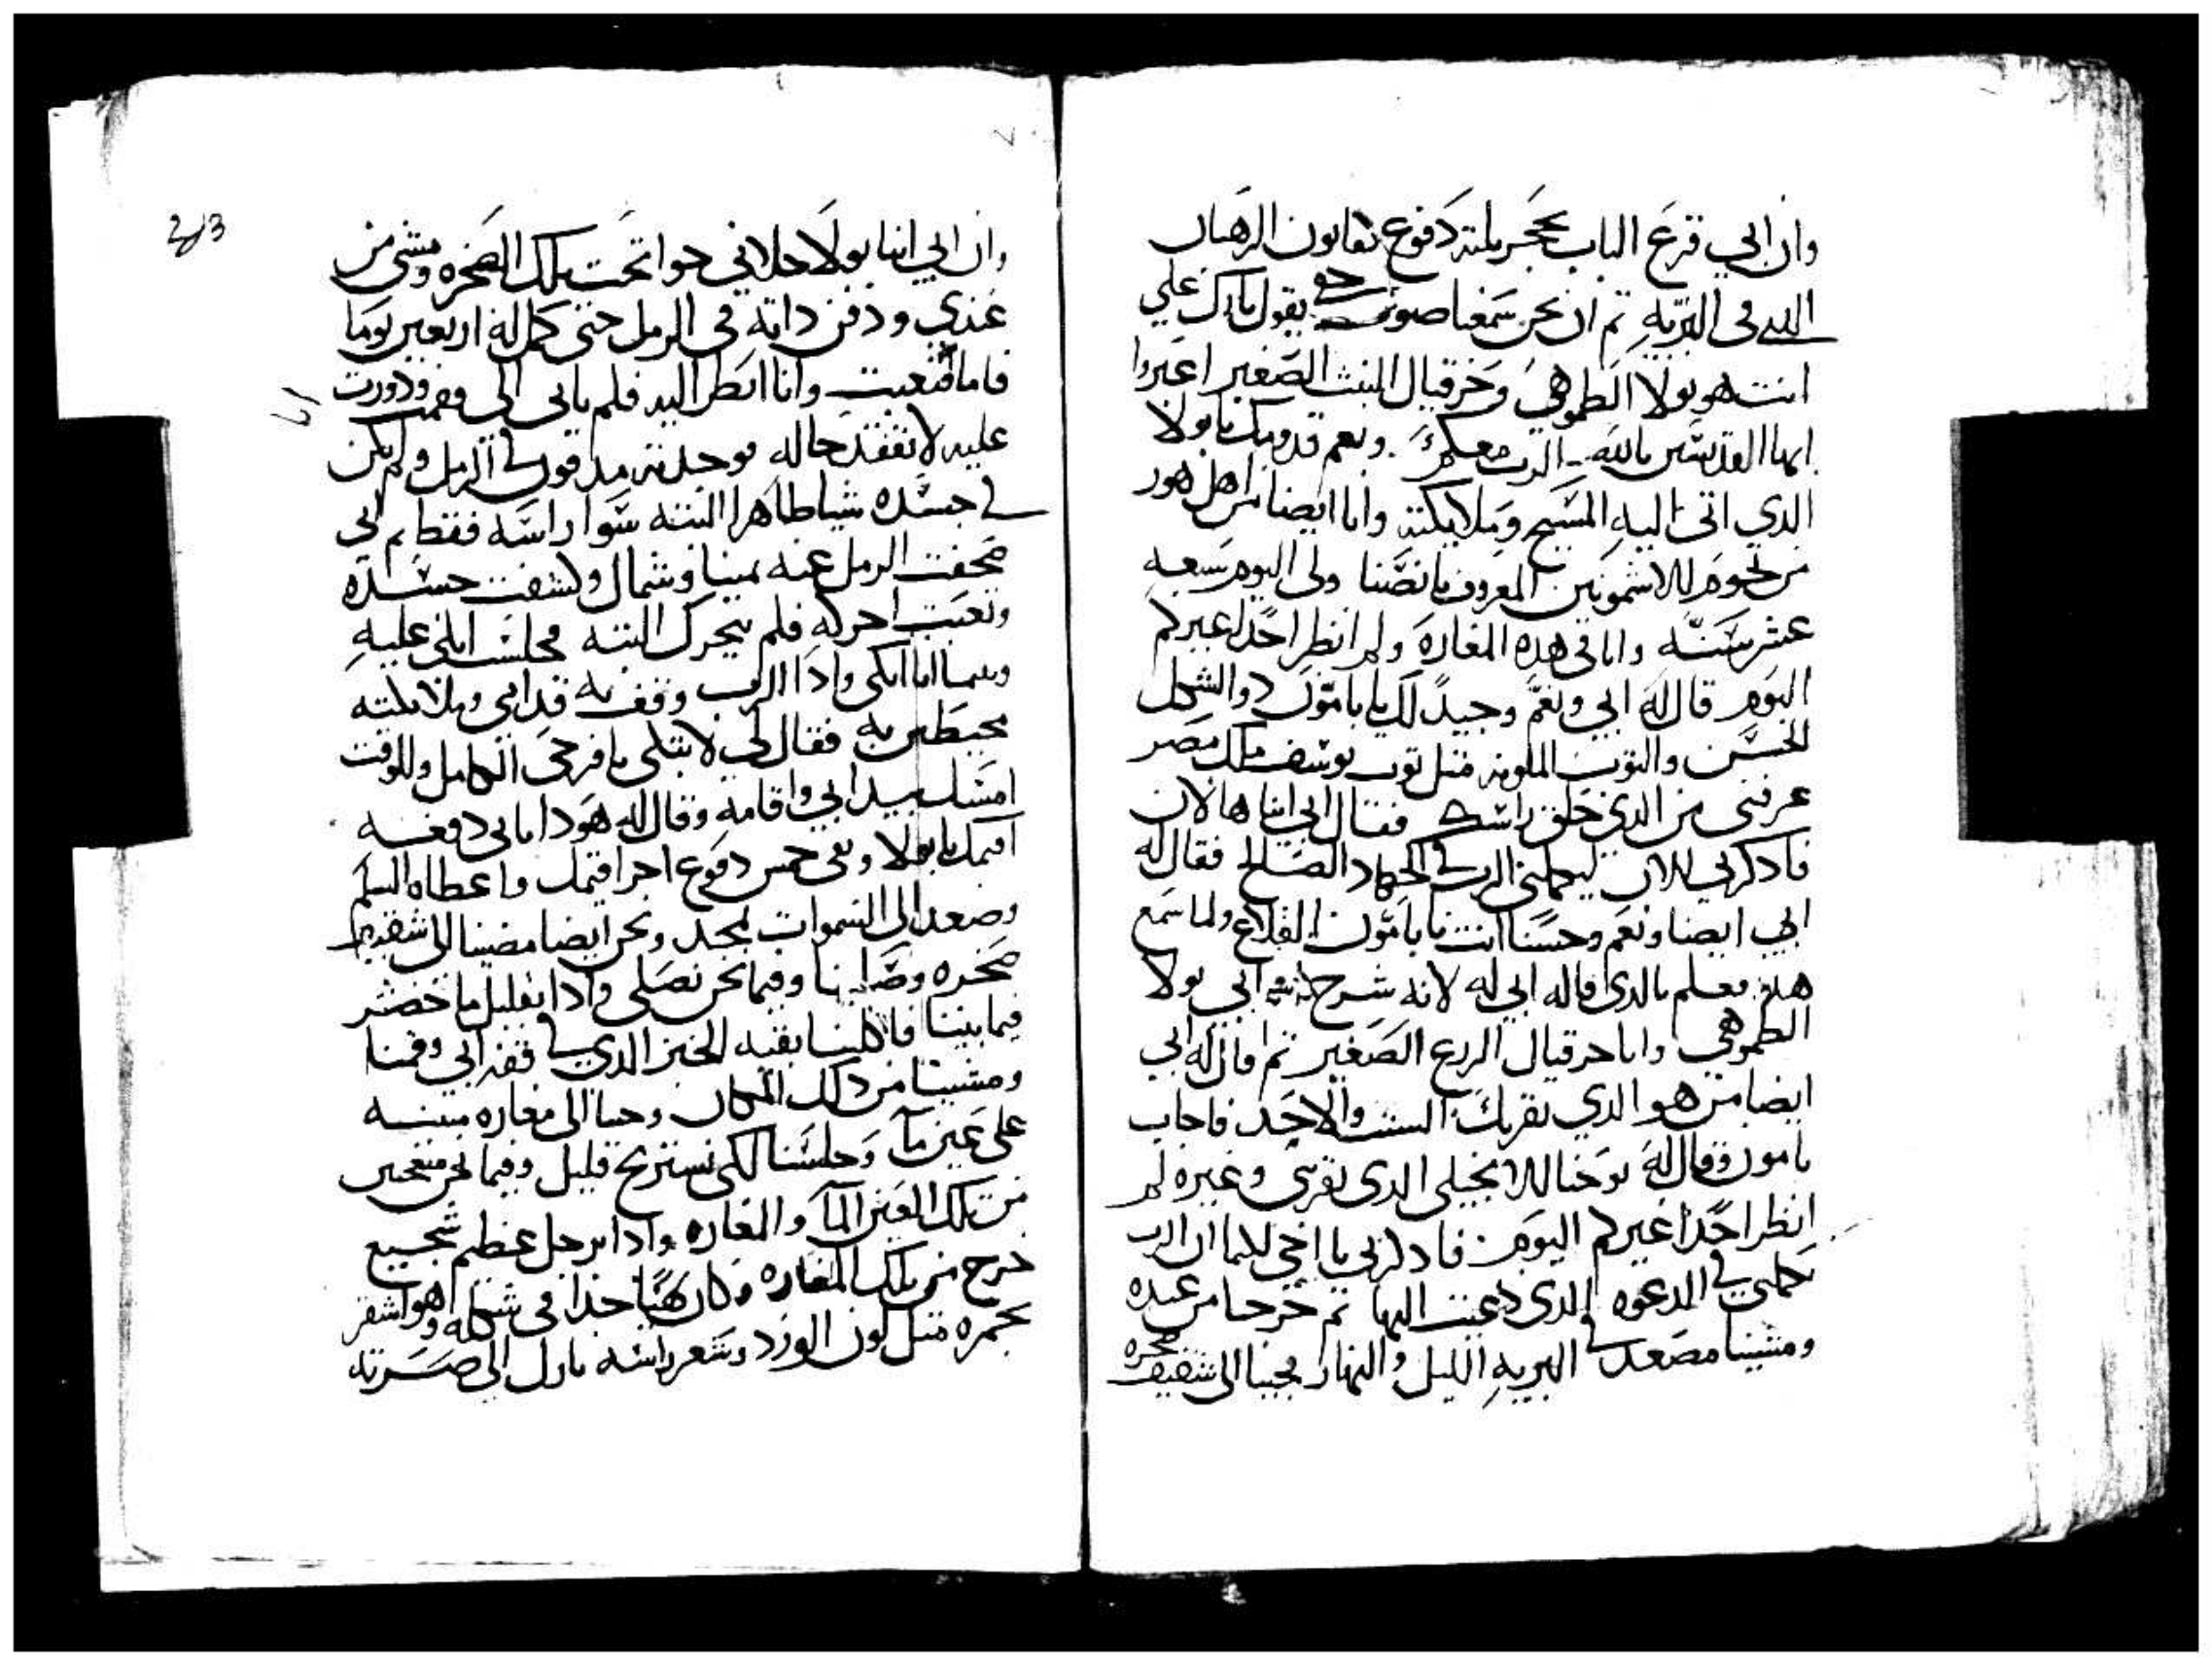 وان ابي قرع الباب بحجر ثلثة دفوع كقانون الرهبان
الذي في البريه تم ان نحن سمعنا صوت خفي يقول بارك علي
انت هو بولا الطموهي وحزقيال البنت الصغير اعبروا
ايها القديسين بالله الرب معكم ونعم قدومك يا بولا
الدي اتى اليه المسيح وملايكته وانا ايضا من اهل هور
من تخوم الاشمونين المعروف بانصنا ولي اليوم سبعه
عشر سنه وانا في هده المغاره ولم انظر احدا غيركم
اليوم قال له ابي ونعم وجيد لك يا بامون دو الشكل
الحسن والتوب الملون متل توب يوسف ملك مصر
عرفني من الدي حلق راسك فقال ابي انبا هالان
فادكرني الان ليكملني الرب في الجهاد الصالح فقال له
ابي ايضا ونعم وحسنا انت يا بامون القلاع ولما سمع
هدا معلم بالدي قاله ابي له لانه شرح له ابي بولا
الطموهي وانا حزقيال الزرع الصغير تم قال له ابي
ايضا من هو الدي يقربك السبت والاحد فاجاب
بامون وقال له يوحنا الانجيلي الدي يقربني وغيره لم
انظر احدا غيركم اليوم فادكرني يا اخي لكيما ان الرب
يكملني في الدعوه الدي دعيت اليها تم خرجنا من عنده
ومشينا مصعد في البريه الليل والنهار فجينا الى شقيف
صخره
213
وان ابي انبا بولا خلاني جوا تحت تلك الصخره ومشى من
عندي ودفن داته في الرمل حتى كمل له اربعين يوما
فاما انا فتعبت وانا انتظر اليه فلم ياتي الى فقمت ودورت
عليه لاتفقد حاله فوجدته مدفون في الرمل ولم يكن
في جسده شيا ظاهرا البته سوا راسه فقط تم اني
صحفت الرمل عنه يمينا وشمال وكشفت جسده
وتعبت احركه فلم يتحرك البته فجلست ابكي عليه
وبينما انا ابكي وادا الرب وقف به قدامي وملايكته
محيطين به فقال لي لا تبكي يا فرخي الكامل وللوقت
امسك بيد ابي واقامه وقال له هودا اناني دفعه
اقيمك يا بولا وبقي خمس دفوع اخر اقيمك واعطاه السلم
وصعد الى السموات بمجد ونحن ايضا مضينا الى شقيف
صخره وصلينا وفيما نحن نصلي وادا بقليل ما خضر
فيما بيننا فاكلنا بقية الخبز الدي في قفة ابي وقمنا
ومشينا من دلك المكان وجينا الى مغاره مبنيه
على عين ما وجلسنا لكي نستريح قليل وفيما نحن متعجبين
من تلك العين الما والمغاره وادا برجل عظيم شجيع
خرج من تلك المغاره وكان بهيا جدا في شكله وهو اشقر
بحمره متل لون الورد وشعر راسه نازل الى صرته